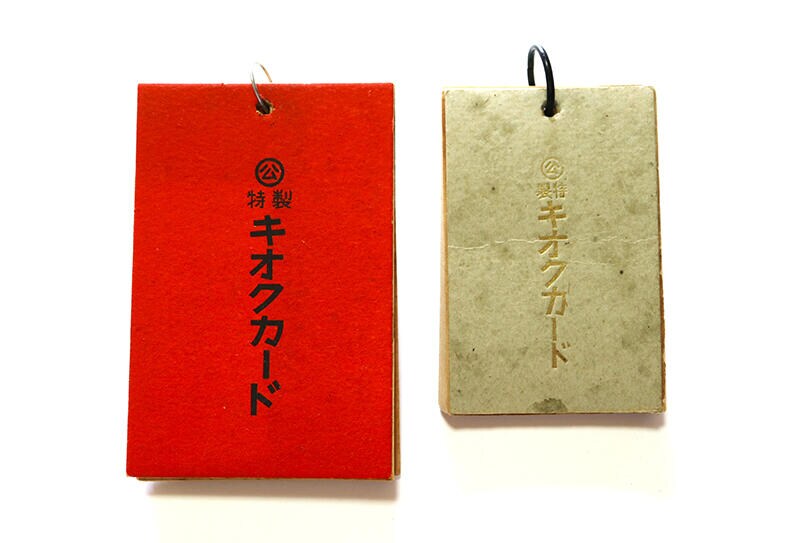 ㊋
特製
キオクカード
公
製特
キオクカード